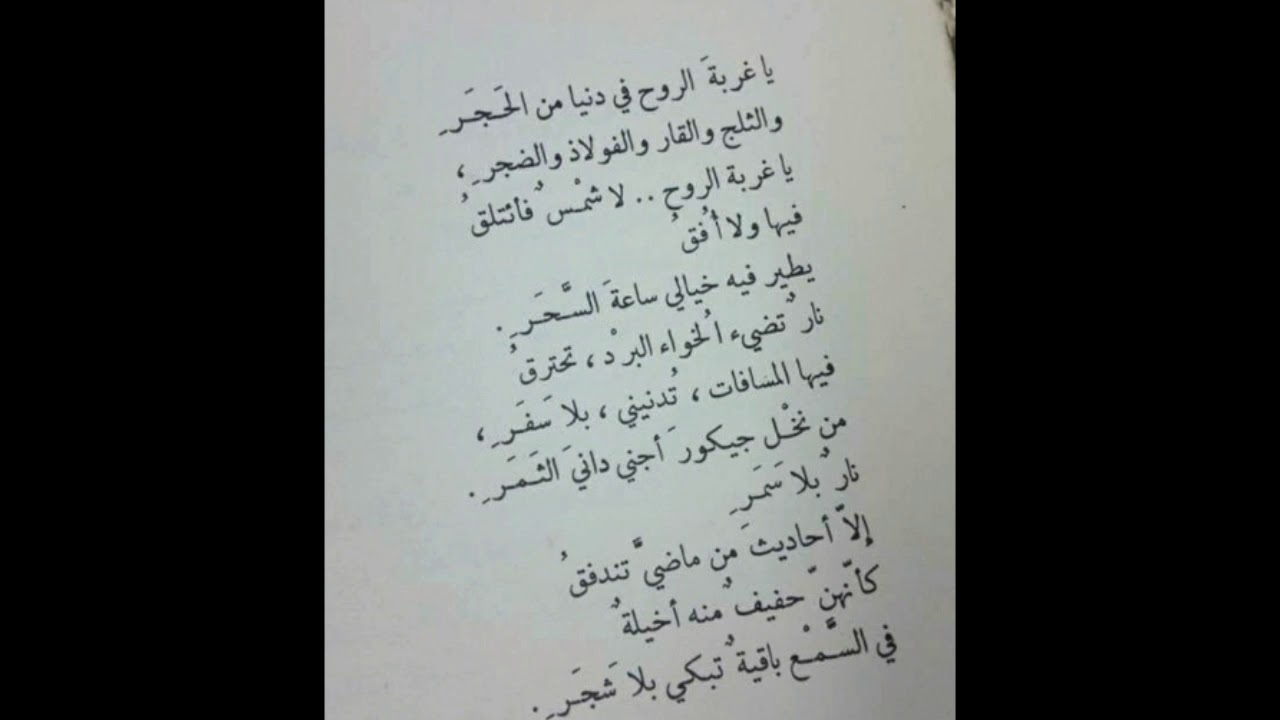 يا غربةَ الروح في دنيا من الحَجَرِ
والثلج والقار والفولاذ والضجرِ ،
يا غربة الروح .. لا شمْسٌ فأئتلقُ
فيها ولا أُفُقُ
يطير فيه خيالي ساعةَ السَّحَرِ .
نارٌ تضيء الخُواء البرْد ، تحترقُ
فيها المسَافات ، تُدنيني ، بلا سَفَرِ ،
من نخْل جيكورَ أجني دانيَ الثَمَرِ .
نارٌ بلا سَمَرِ
إلاّ أحاديثَ من ماضيَّ تندفقُ
كأنّهنّ حفيفٌ منه أخيلةٌ
في السَّمْع باقيةٌ تبكي بلا شَجَرِ .